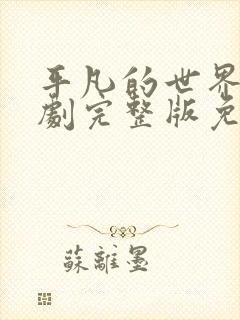 平凡的世界
劇完整版免
蘇離墨